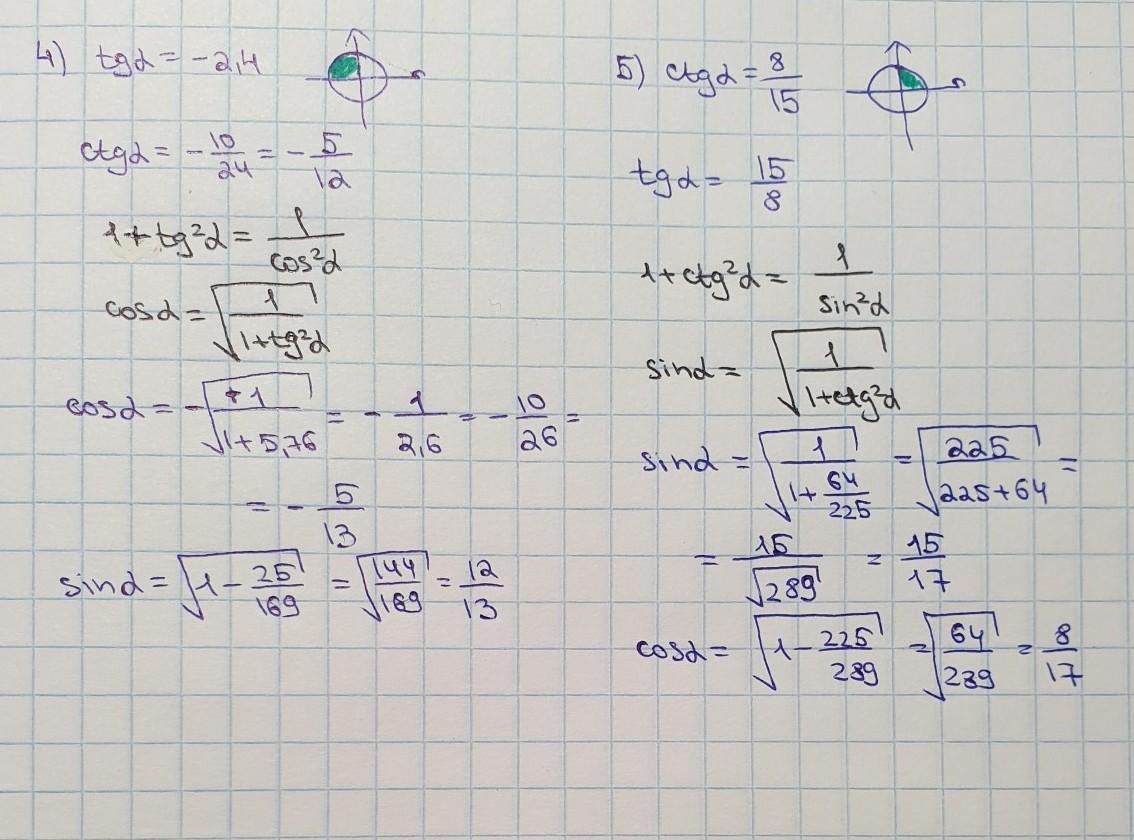 4) tgα = -2,4
ctgα = -10/24 = -5/12
1 + tg²α = 1/cos²α
cosα = √(1/(1+tg²α))
cosα = -√(+1/(1+5,76)) = -1/2,6 = -10/26 =
= -5/13
sinα = √(1 - 25/169) = √(144/169) = 12/13
5) ctgα = 8/15
tgα = 15/8
1 + ctg²α = 1/sin²α
sinα = √(1/(1+ctg²α))
sinα = √(1/(1+64/225)) = √(225/(225+64)) =
= 15/√289 = 15/17
cosα = √(1 - 225/289) = √(64/289) = 8/17